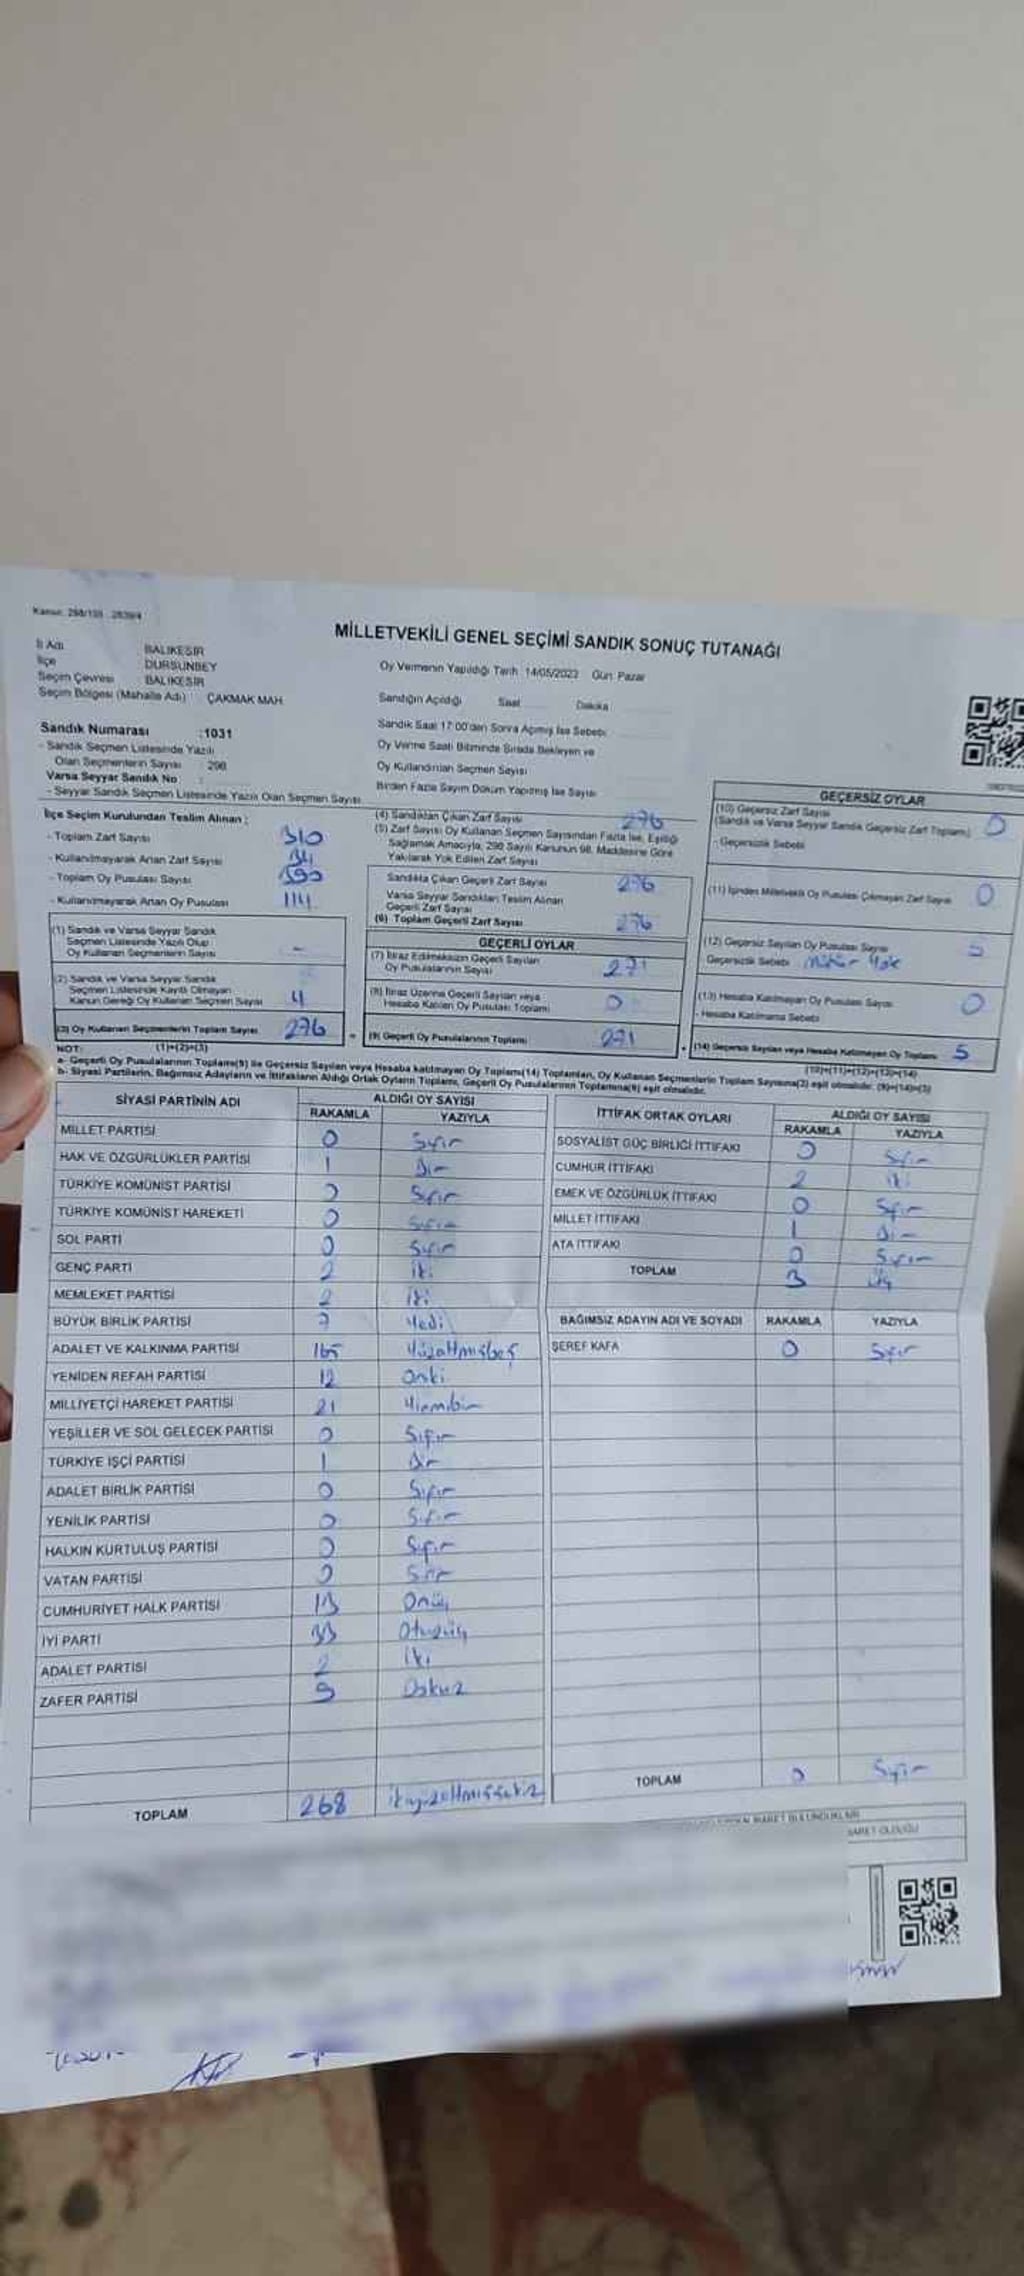 Kanun: 298/105 - 2839/4
MİLLETVEKİLİ GENEL SEÇİMİ SANDIK SONUÇ TUTANAĞI
İl Adı BALIKESİR
İlçe DURSUNBEY
Seçim Çevresi BALIKESİR
Seçim Bölgesi (Mahalle Adı) : ÇAKMAK MAH
Oy Vermenin Yapıldığı Tarih 14/05/2023 Gün: Pazar
Sandığın Açıldığı Saat Dakika
Sandık Saat 17:00'den Sonra Açılmış İse Sebebi
Oy Verme Saati Bitiminde Sırada Bekleyen ve
Oy Kullandırılan Seçmen Sayısı
Birden Fazla Sayım Döküm Yapılmış İse Sayısı
Sandık Numarası : 1031
- Sandık Seçmen Listesinde Yazılı
Olan Seçmenlerin Sayısı : 298
Varsa Seyyar Sandık No :
- Seyyar Sandık Seçmen Listesinde Yazılı Olan Seçmen Sayısı
İlçe Seçim Kurulundan Teslim Alınan :
- Toplam Zarf Sayısı 310
- Kullanılmayarak Artan Zarf Sayısı 34
- Toplam Oy Pusulası Sayısı
- Kullanılmayarak Artan Oy Pusulası 114
(1) Sandık ve Varsa Seyyar Sandık
Seçmen Listesinde Yazılı Olup
Oy Kullanan Seçmenlerin Sayısı -
(2) Sandık ve Varsa Seyyar Sandık
Seçmen Listesinde Kayıtlı Olmayan
Kanun Gereği Oy Kullanan Seçmen Sayısı 4
(3) Oy Kullanan Seçmenlerin Toplam Sayısı 276
(1)+(2)=(3)
(4) Sandıktan Çıkan Zarf Sayısı 276
(5) Zarf Sayısı Oy Kullanan Seçmen Sayısından Fazla İse, Eşitliği
Sağlamak Amacıyla, 298 Sayılı Kanunun 98. Maddesine Göre
Yakılarak Yok Edilen Zarf Sayısı
Sandıkta Çıkan Geçerli Zarf Sayısı 276
Varsa Seyyar Sandıktan Teslim Alınan
Geçerli Zarf Sayısı
(6) Toplam Geçerli Zarf Sayısı 276
GEÇERLİ OYLAR
(7) İtiraz Edilmeksizin Geçerli Sayılan
Oy Pusulalarının Sayısı 271
(8) İtiraz Üzerine Geçerli Sayılan veya
Hesaba Katılan Oy Pusulası Toplamı 0
(9) Geçerli Oy Pusulalarının Toplamı 271
GEÇERSİZ OYLAR
(10) Geçersiz Zarf Sayısı
(Sandık ve Varsa Seyyar Sandık Geçersiz Zarf Toplamı) 0
- Geçersizlik Sebebi
(11) İçinden Milletvekili Oy Pusulası Çıkmayan Zarf Sayısı 0
(12) Geçersiz Sayılan Oy Pusulası Sayısı 5
Geçersizlik Sebebi Mühür Yok
(13) Hesaba Katılmayan Oy Pusulası Sayısı 0
- Hesaba Katılmama Sebebi
(14) Geçersiz Sayılan veya Hesaba Katılmayan Oy Toplamı 5
(10)+(11)+(12)+(13)=(14)
NOT:
a- Geçerli Oy Pusulalarının Toplamı(9) ile Geçersiz Sayılan veya Hesaba katılmayan Oy Toplamı(14) Toplamları, Oy Kullanan Seçmenlerin Toplam Sayısına(3) eşit olmalıdır. (9)+(14)=(3)
b- Siyasi Partilerin, Bağımsız Adayların ve İttifakların Aldığı Ortak Oyların Toplamı, Geçerli Oy Pusulalarının Toplamına(9) eşit olmalıdır.
SİYASİ PARTİNİN ADI ALDIĞI OY SAYISI
RAKAMLA YAZIYLA
MİLLET PARTİSİ 0 Sıfır
HAK VE ÖZGÜRLÜKLER PARTİSİ 1 Bir
TÜRKİYE KOMÜNİST PARTİSİ 0 Sıfır
TÜRKİYE KOMÜNİST HAREKETİ 0 Sıfır
SOL PARTİ 0 Sıfır
GENÇ PARTİ 2 İki
MEMLEKET PARTİSİ 2 İki
BÜYÜK BİRLİK PARTİSİ 7 Yedi
ADALET VE KALKINMA PARTİSİ 165 Yüzaltmışbeş
YENİDEN REFAH PARTİSİ 12 Oniki
MİLLİYETÇİ HAREKET PARTİSİ 21 Yirmibir
YEŞİLLER VE SOL GELECEK PARTİSİ 0 Sıfır
TÜRKİYE İŞÇİ PARTİSİ 1 Bir
ADALET BİRLİK PARTİSİ 0 Sıfır
YENİLİK PARTİSİ 0 Sıfır
HALKIN KURTULUŞ PARTİSİ 0 Sıfır
VATAN PARTİSİ 0 Sıfır
CUMHURİYET HALK PARTİSİ 13 Onüç
İYİ PARTİ 33 Otuzüç
ADALET PARTİSİ 2 İki
ZAFER PARTİSİ 9 Dokuz
TOPLAM 268 ikiyüzaltmışsekiz
İTTİFAK ORTAK OYLARI ALDIĞI OY SAYISI
RAKAMLA YAZIYLA
SOSYALİST GÜÇ BİRLİĞİ İTTİFAKI 0 Sıfır
CUMHUR İTTİFAKI 2 İki
EMEK VE ÖZGÜRLÜK İTTİFAKI 0 Sıfır
MİLLET İTTİFAKI 1 Bir
ATA İTTİFAKI 0 Sıfır
TOPLAM 3 Üç
BAĞIMSIZ ADAYIN ADI VE SOYADI RAKAMLA YAZIYLA
ŞEREF KAFA 0 Sıfır
TOPLAM 0 Sıfır